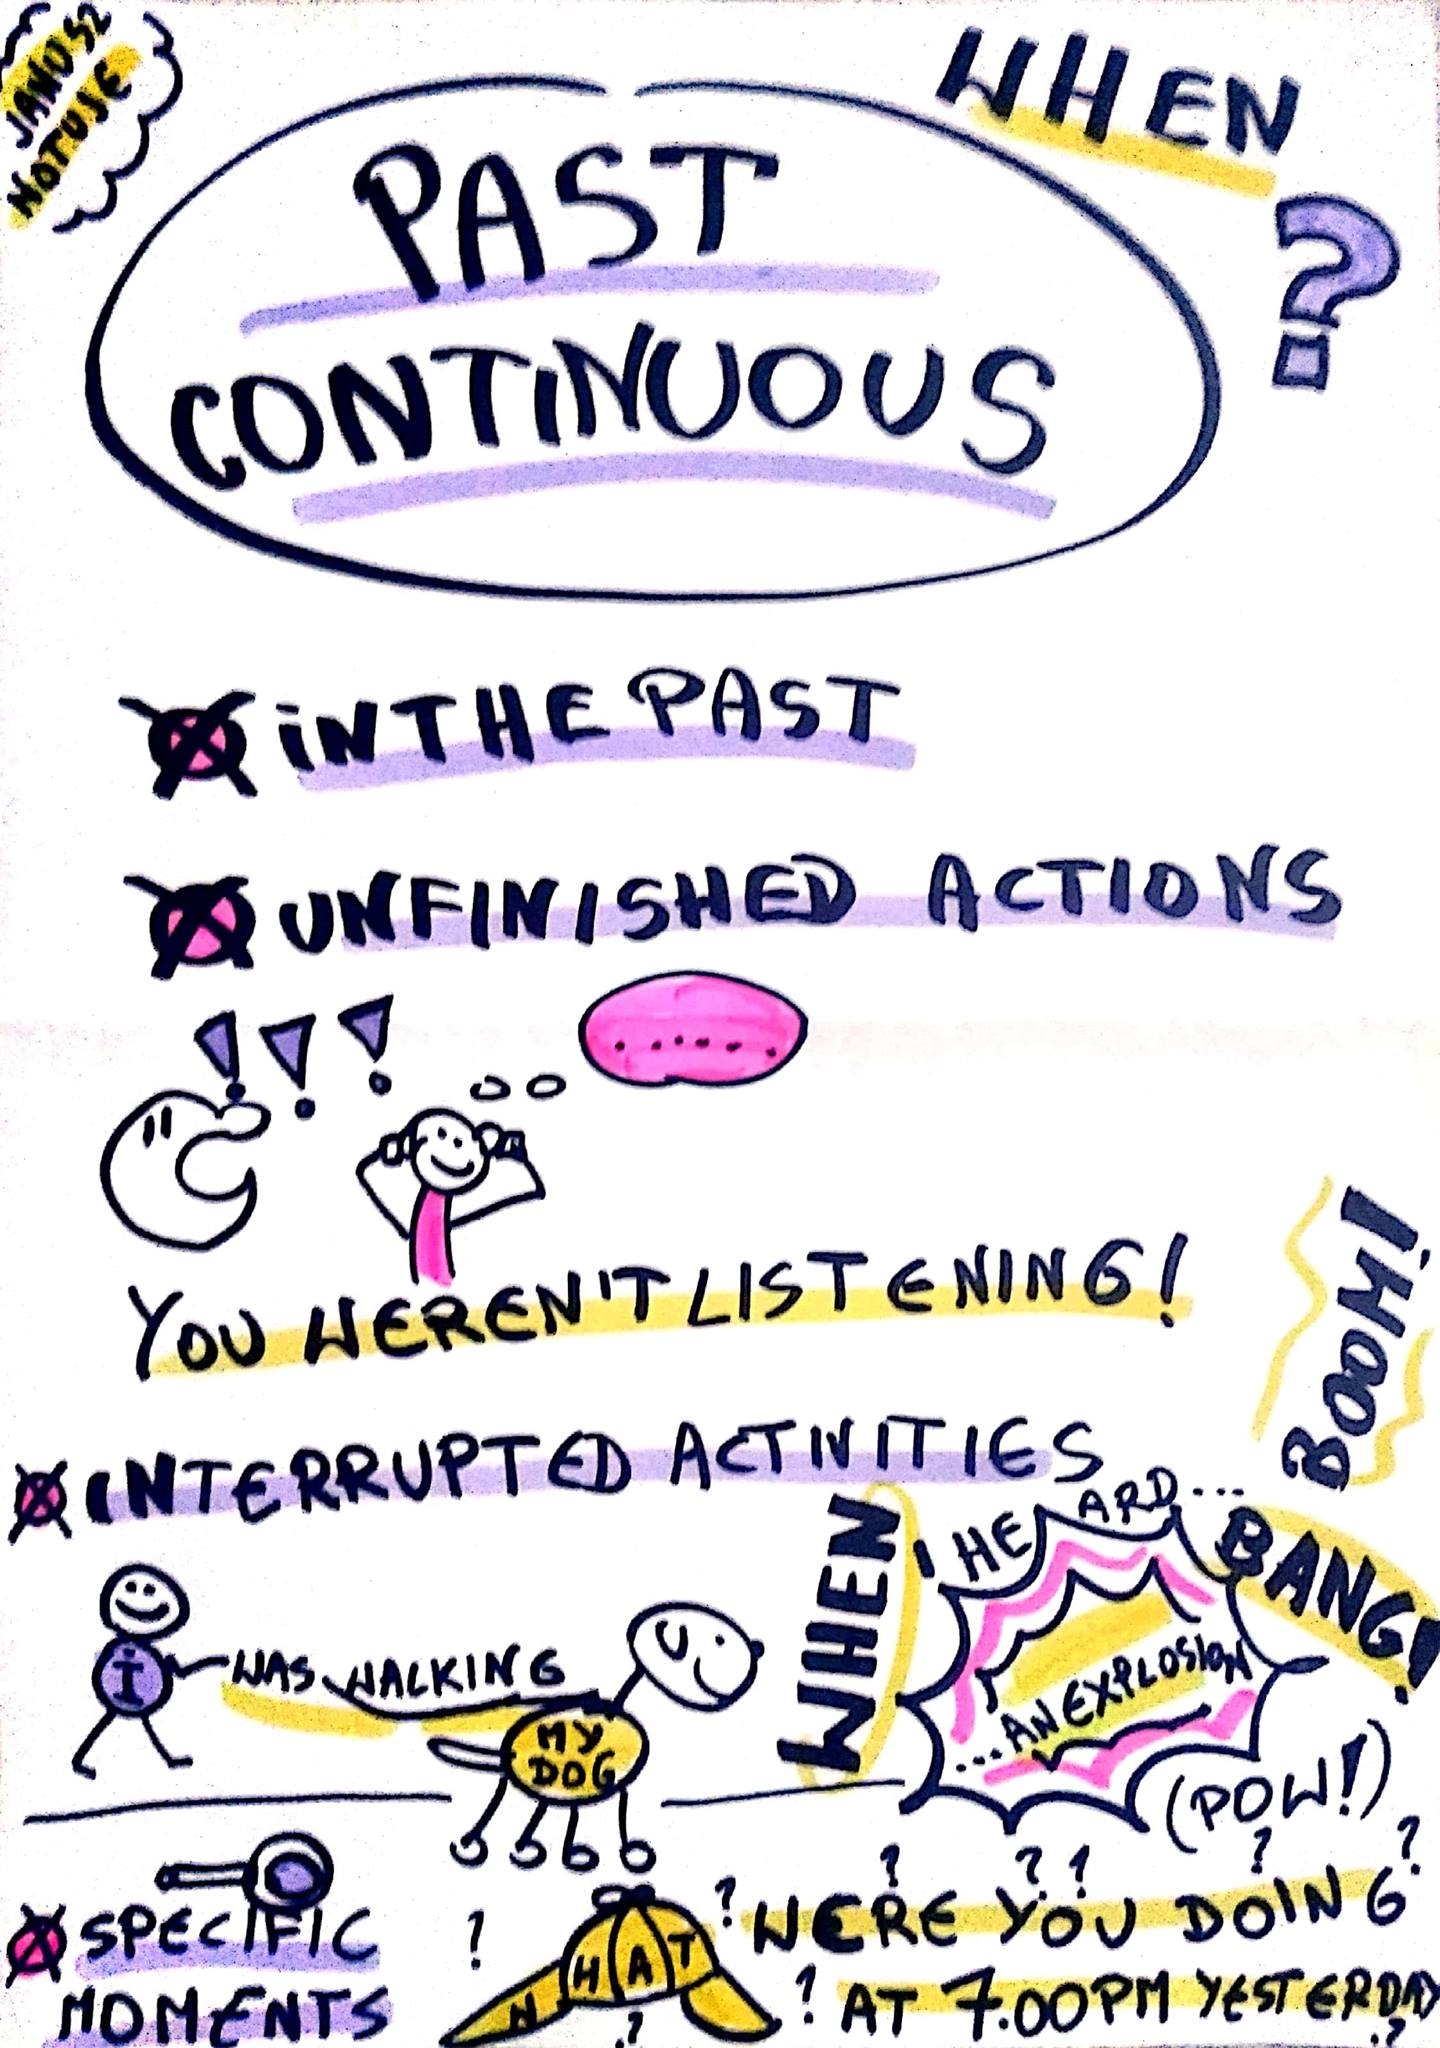 JANOSZ
NOTUJE
WHEN
?
PAST
CONTINUOUS
IN THE PAST
UNFINISHED ACTIONS
! ! !
......
YOU WEREN'T LISTENING!
BOOM!
INTERRUPTED ACTIVITIES
I WAS WALKING
MY
DOG
WHEN
I HEARD...
BANG!
...AN EXPLOSION
(POW!)
SPECIFIC
MOMENTS
? WHAT ? WERE YOU DOING ? ? ? ? ?
? AT 7.00PM YESTERDAY
? ?